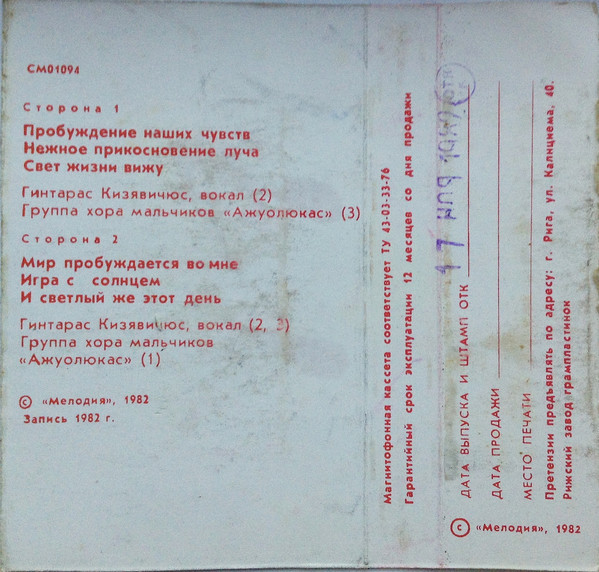 СМ01094
Сторона 1
Пробуждение наших чувств
Нежное прикосновение луча
Свет жизни вижу
Гинтарас Кизявичюс, вокал (2)
Группа хора мальчиков «Ажуолюкас» (3)
Сторона 2
Мир пробуждается во мне
Игра с солнцем
И светлый же этот день
Гинтарас Кизявичюс, вокал (2, 3)
Группа хора мальчиков
«Ажуолюкас» (1)
© «Мелодия», 1982
Запись 1982 г.
Магнитофонная кассета соответствует ТУ 43-03-33-76
Гарантийный срок эксплуатации 12 месяцев со дня продажи
ДАТА ВЫПУСКА И ШТАМП ОТК
17 НОЯ
ДАТА ПРОДАЖИ
МЕСТО ПЕЧАТИ
Претензии предъявлять по адресу: г. Рига, ул. Калнциема, 40.
Рижский завод грампластинок
© «Мелодия», 1982